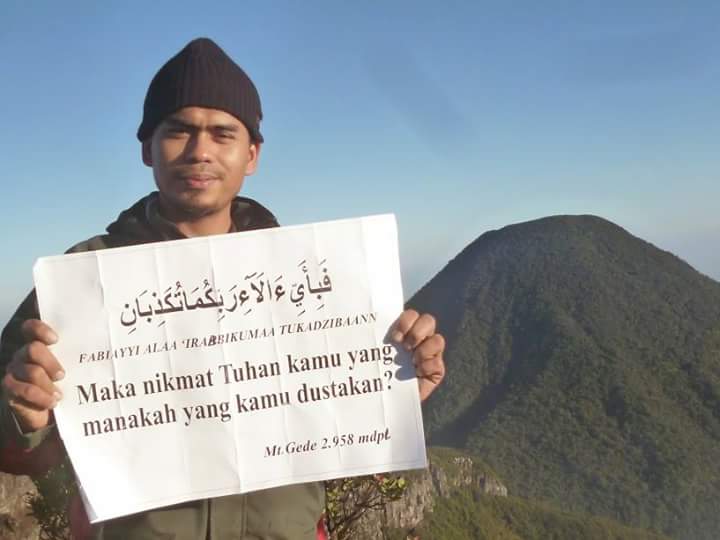 فَبِأَيِّ ءَالَآءِ رَبِّكُمَا تُكَذِّبَانِ
FABIAYYI ALAA 'IRABBIKUMAA TUKADZIBAANN
Maka nikmat Tuhan kamu yang
manakah yang kamu dustakan?
Mt.Gede 2.958 mdpl